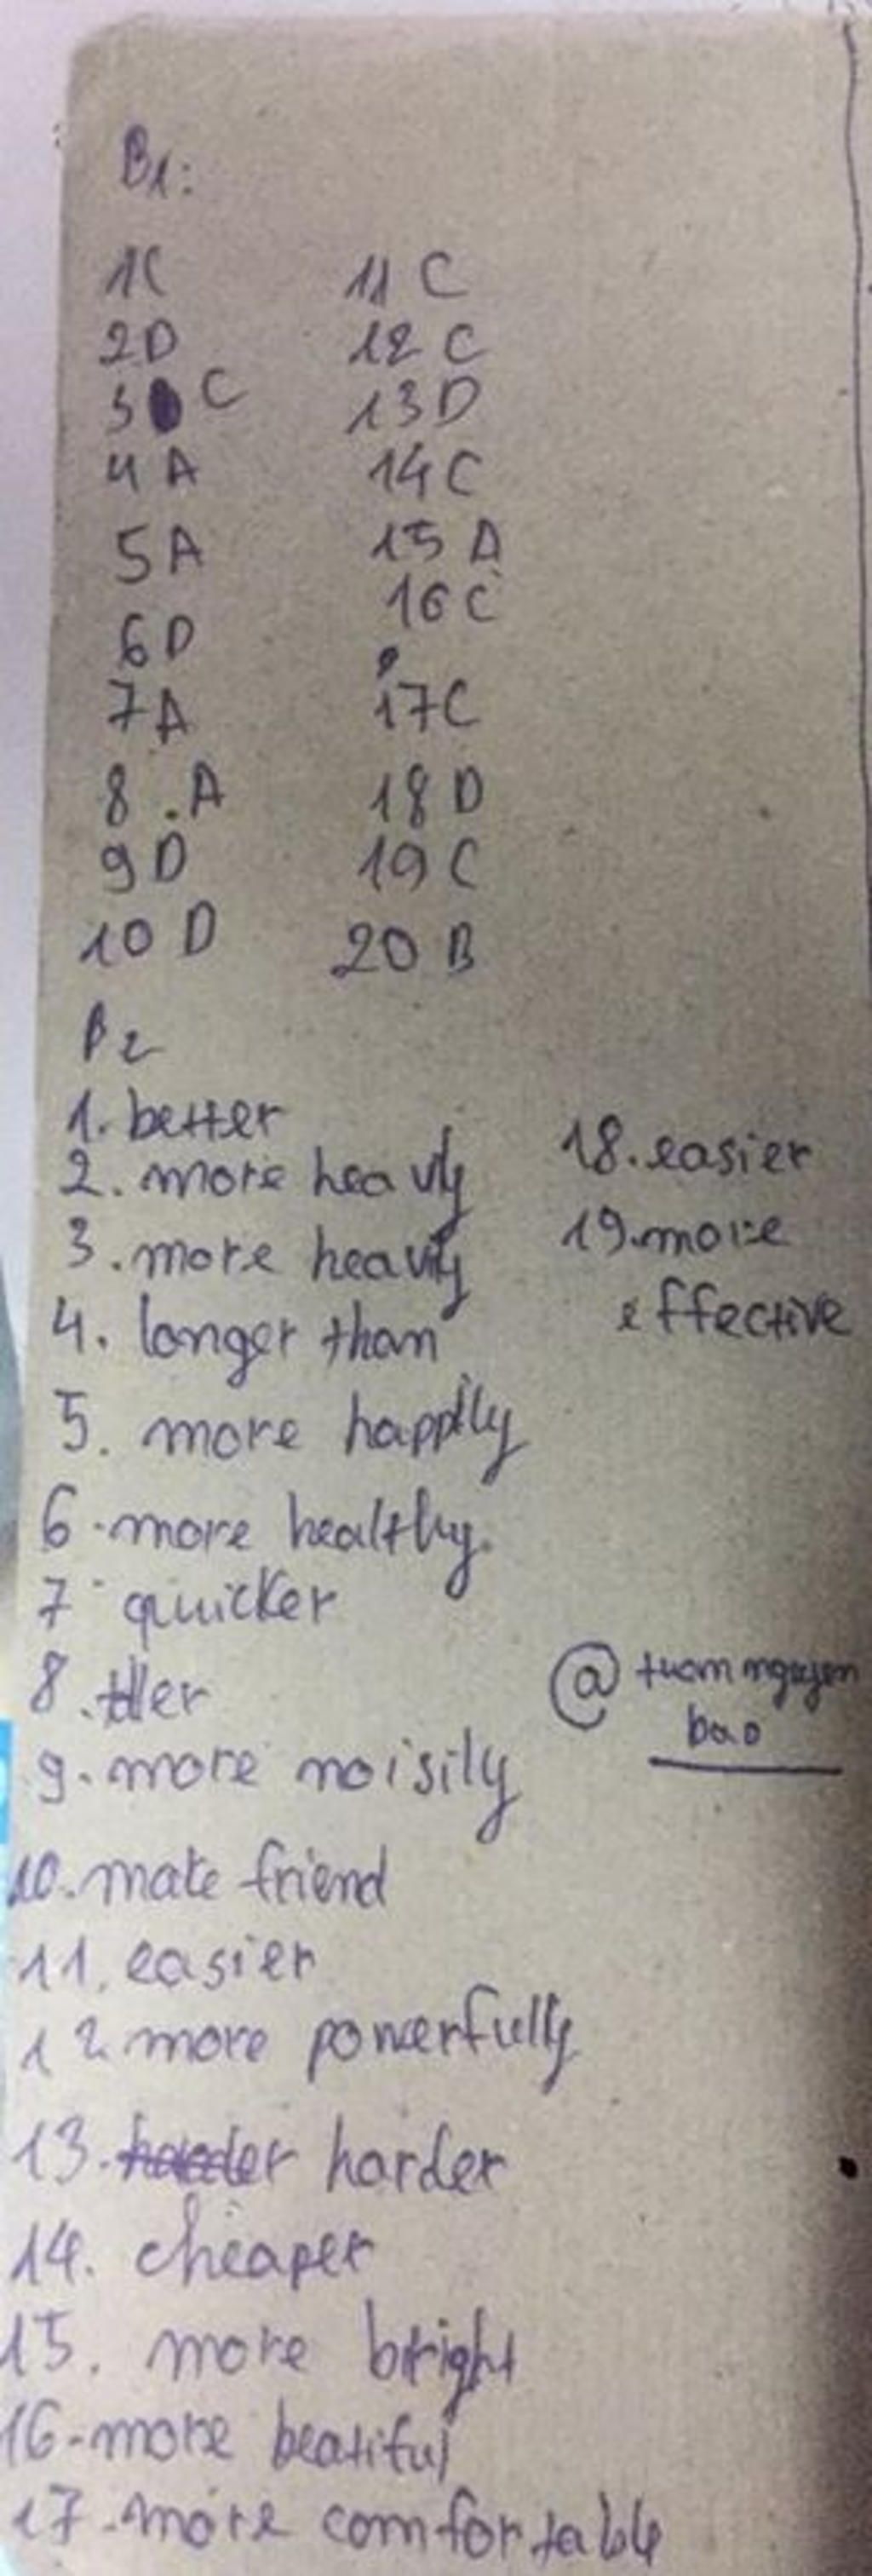 B1:
1C
2D
3 C
4 A
5A
6D
7A
8.A
9D
10 D
11 C
12 C
13D
14C
15 A
16 C
17C
18 D
19 C
20 B
B2
1. better
2. more heavily
3. more heavily
4. longer than
5. more happily
6. more healthy.
7 quicker
8.
9. more noisily
10. make friend
11. easier
12. more powerfully
13. harder
14. cheaper
15. more bright
16. more beatiful
17. more comfortable
18. easier
19. more
effective
@ tuan nguyen
bao